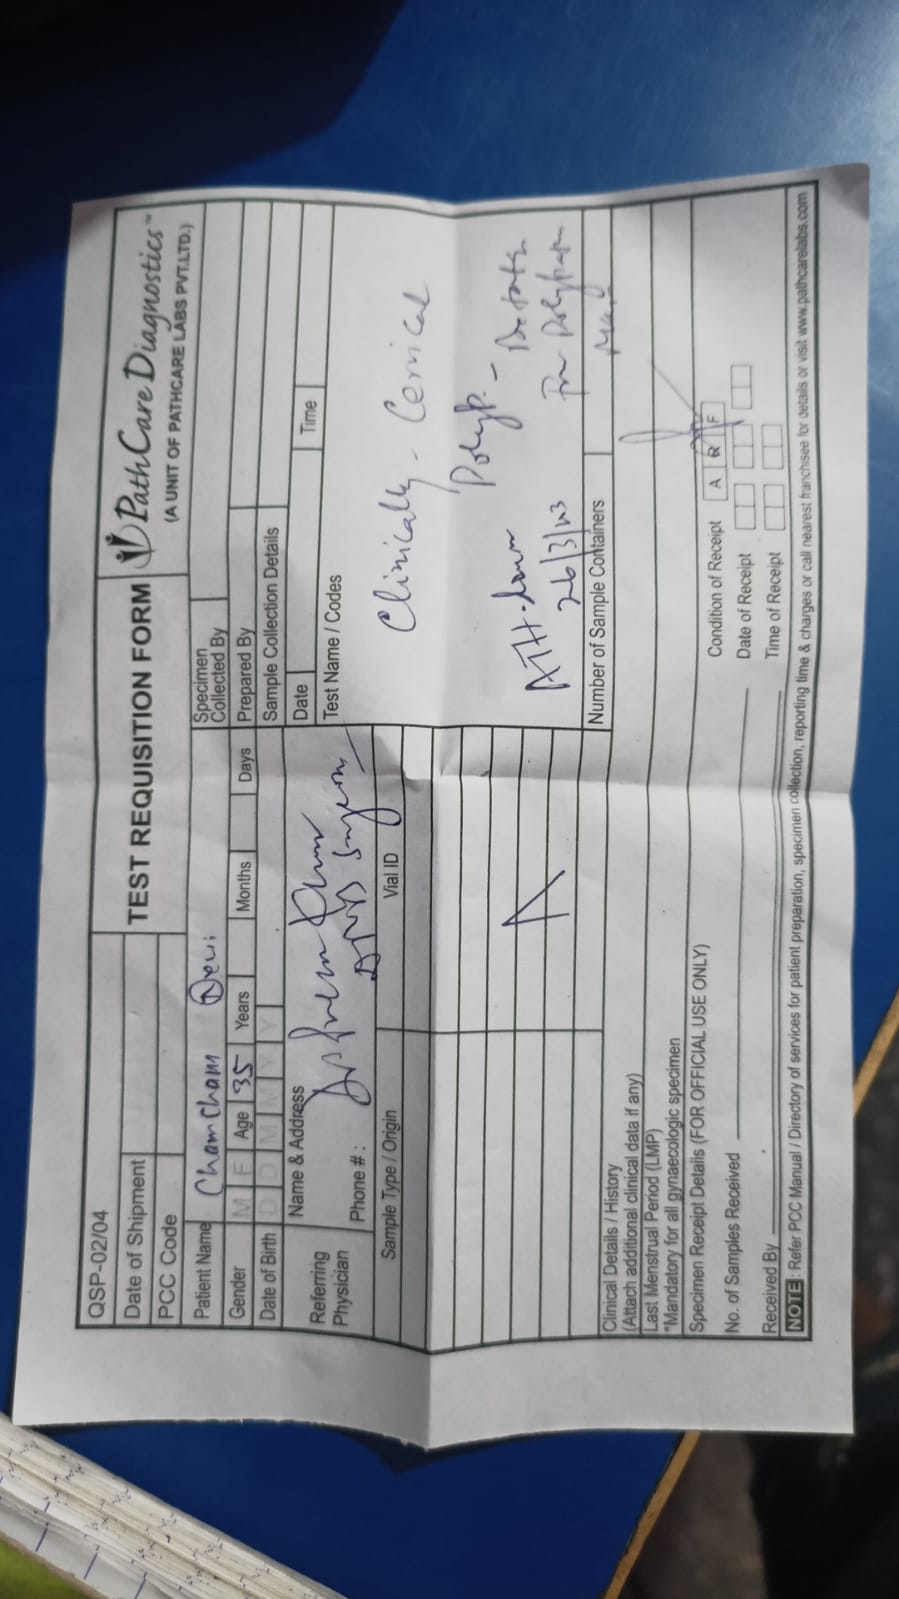 QSP-02/04
TEST REQUISITION FORM
PathCare Diagnostics™
(A UNIT OF PATHCARE LABS PVT.LTD.)
Date of Shipment
PCC Code
Patient Name Cham Cham Devi
Gender M F Age 35 Years Months Days
Date of Birth D D M M Y Y
Specimen
Collected By
Prepared By
Sample Collection Details
Date Time
Referring
Physician
Name & Address
Surgeon
Phone # :
Test Name / Codes
Clinically - Cervical
Polyp -
Sample Type / Origin Vial ID
26/3/23
Number of Sample Containers
Clinical Details / History
(Attach additional clinical data if any)
Last Menstrual Period (LMP)
*Mandatory for all gynaecologic specimen
Specimen Receipt Details (FOR OFFICIAL USE ONLY)
Condition of Receipt A R F
No. of Samples Received Date of Receipt
Received By Time of Receipt
NOTE : Refer PCC Manual / Directory of services for patient preparation, specimen collection, reporting time & charges or call nearest franchisee for details or visit www.pathcarelabs.com